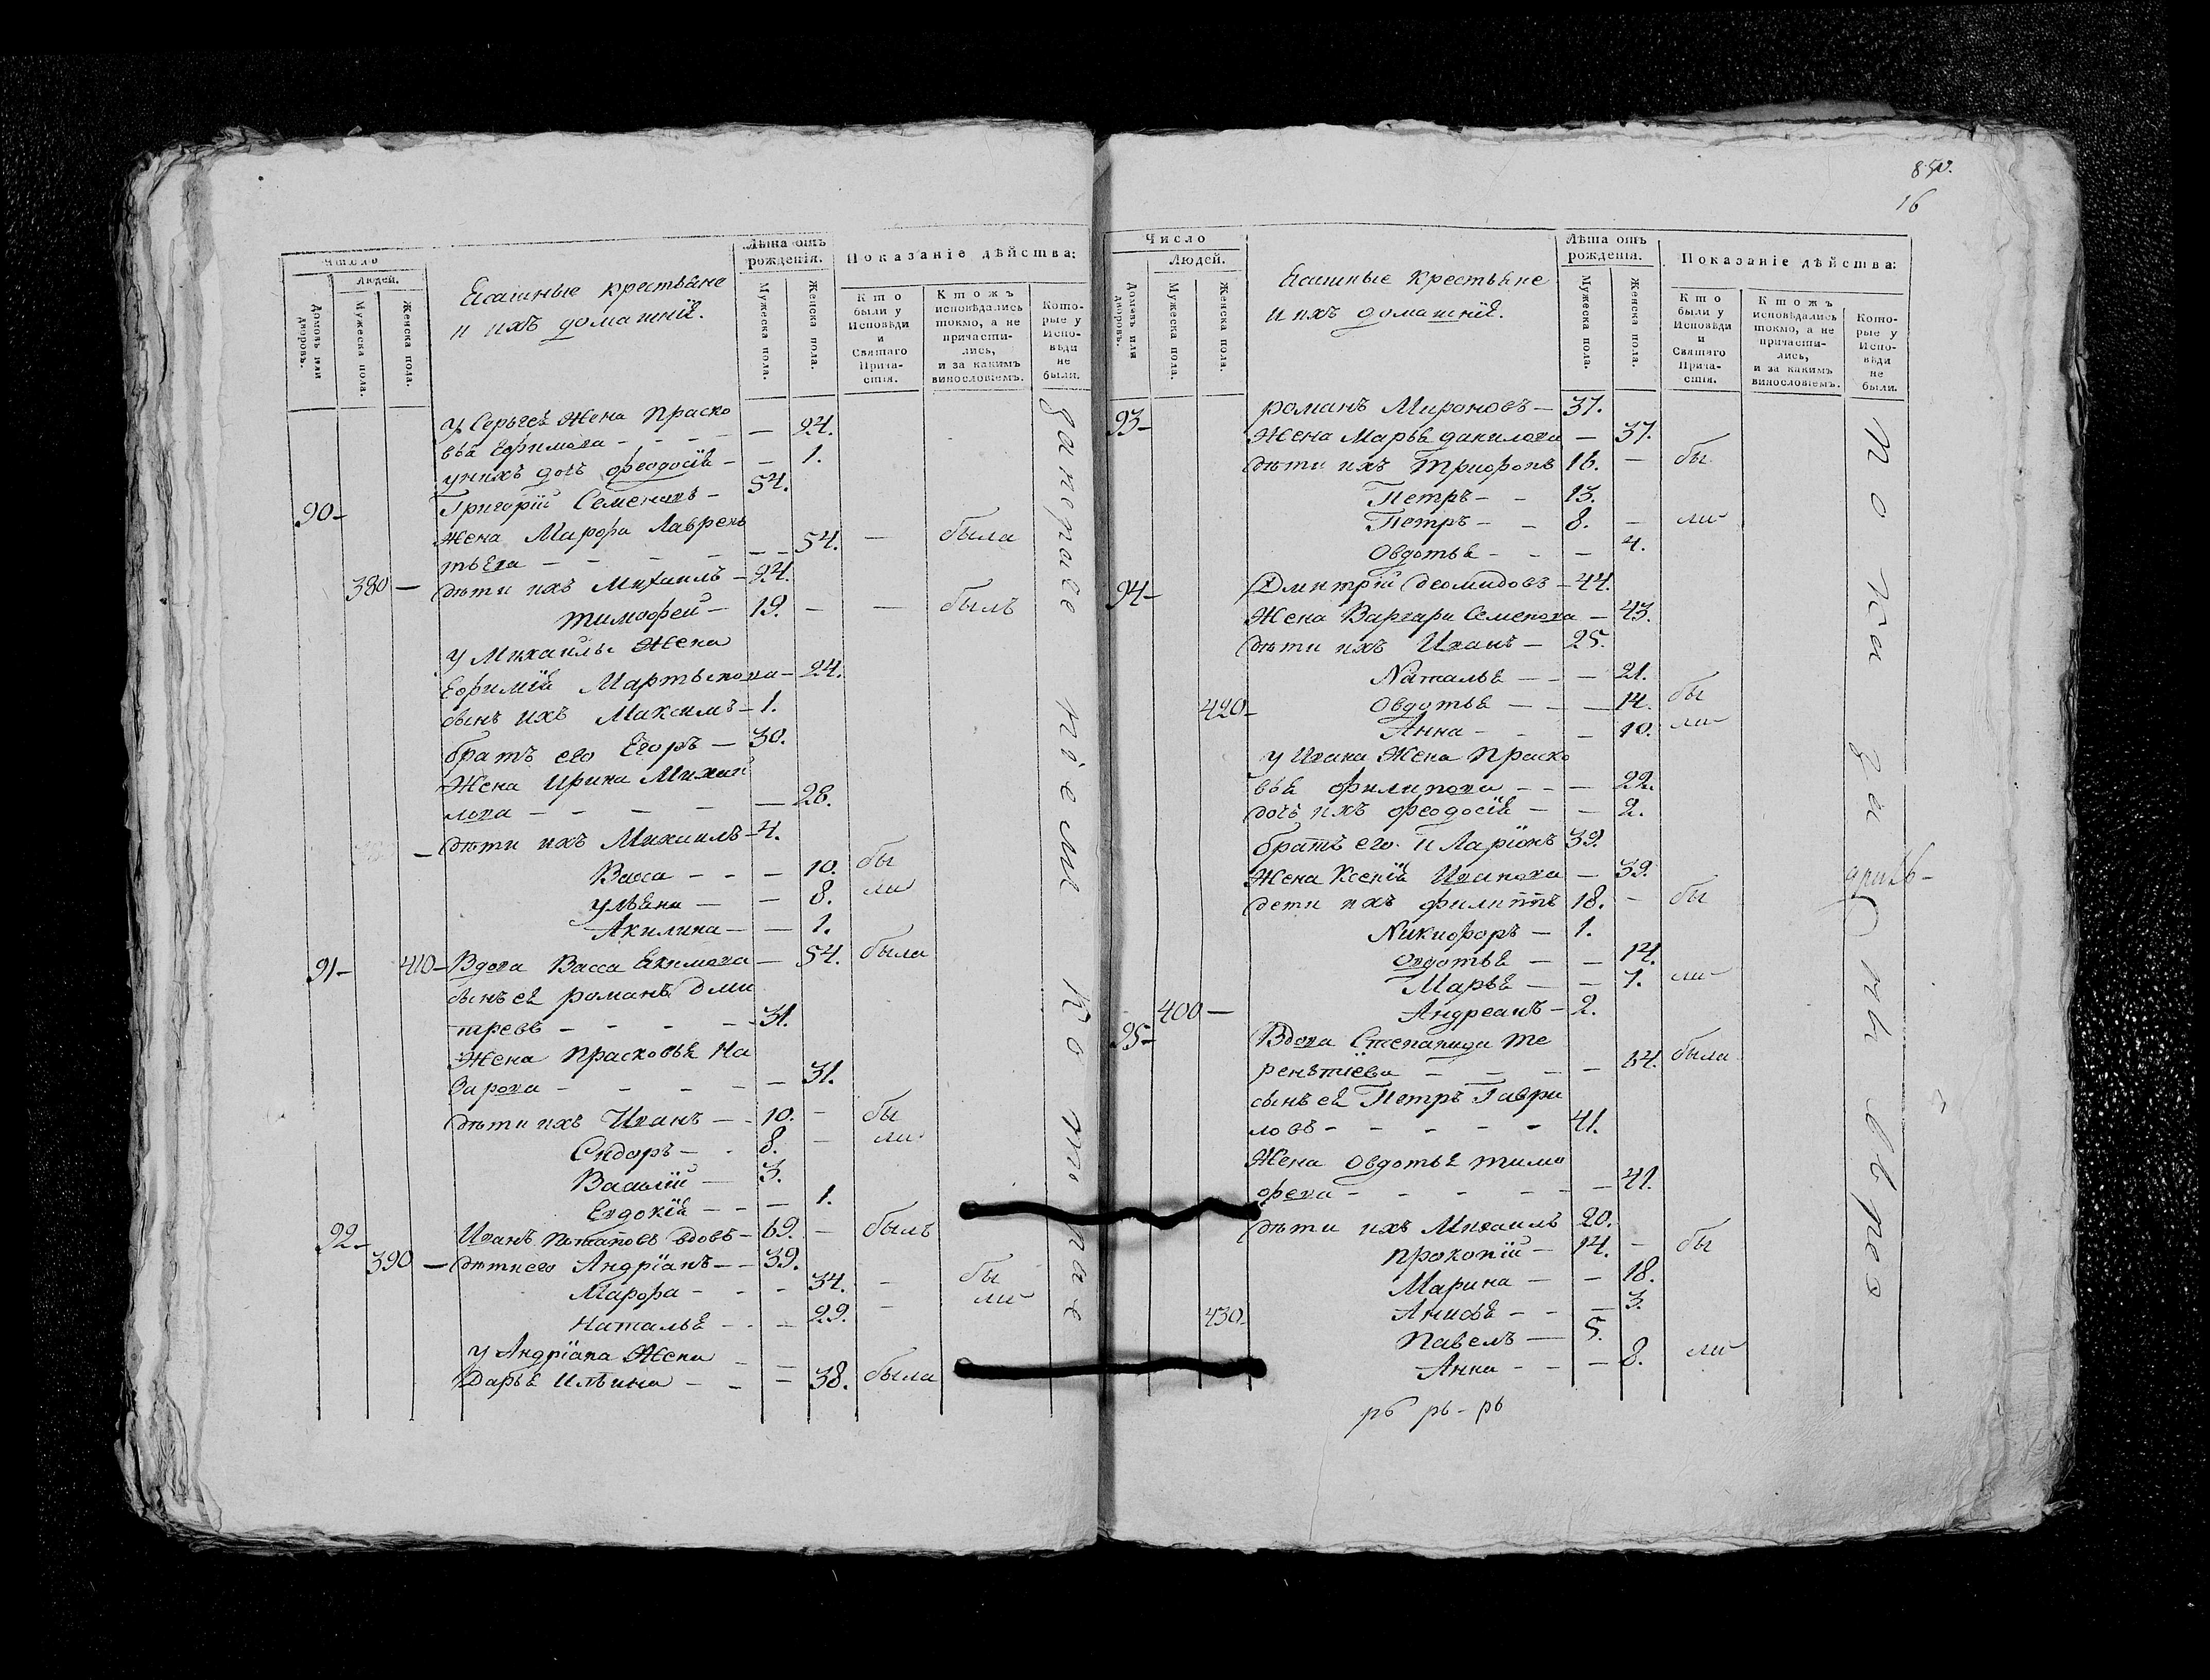 Число
Людей.
Домовъ или дворовъ.
Мужеска пола.
Женска пола.
Ясашные крестьяне
и ихъ домашнїя.
Лѣта отъ рожденїя.
Мужеска пола.
Женска пола.
Показанїе дѣйства:
Кто были у Исповѣди и Святаго Прича-стїя.
Ктожъ исповѣдались токмо, а не причасти-лись, и за какимъ винословїемъ.
Кото-рые у Испо-вѣди не были.
у Сергѣя Жена Праско
вья Ефимова - - - - 24.
у нихъ дочь феодосїя - - 1.
90- Григорїй Семеновъ - 54.
Жена Марфа Лаврень
тьева - - - - - 54. - была
380 - дѣти ихъ Михаилъ - 24.
тимофей - 19. - - былъ
у Михаилы Жена
Ефимїя Мартынова - 24.
сынъ ихъ Максимъ - 1.
братъ его Егоръ - 30.
Жена Ирина Михай
лова - - - - - 28.
- дѣти ихъ Михаилъ - 4.
Васса - - - 10. бы
ульяна - - 8. ли
Акилина - - 1.
91- 410- Вдова Васса Екимова - 54. была
сынъ ея романъ дми
тревъ - - - - - 31.
Жена прасковья На
зарова - - - - - 31.
дѣти ихъ Иванъ - - 10. - бы
Сидоръ - - 8. - ли
Василїй - 3.
Евдокїя - - - 1.
92- Иванъ Потаповъ вдовъ - 69. - былъ
390 - дѣти его Андрїанъ - - 39.
Марфа - - - 34. - бы
Наталья - - - 29. - ли
у Андрїана Жена - -
Дарья Ильина - - - 38. была
16
Число
Людей.
Домовъ или дворовъ.
Мужеска пола.
Женска пола.
Ясашные крестьяне
и ихъ домашнїя.
Лѣта отъ рожденїя.
Мужеска пола.
Женска пола.
Показанїе дѣйства:
Кто были у Исповѣди и Святаго Прича-стїя.
Ктожъ исповѣдались токмо, а не причасти-лись, и за какимъ винословїемъ.
Кото-рые у Испо-вѣди не были.
93- романъ Мироновъ - 37.
Жена Марья данилова - 37.
дѣти ихъ Трифонъ 16. - бы
Петръ - - 13.
Петръ - - 8. - ли
Овдотья - - - 4.
94- Дмитрїй деомидовъ - 44.
Жена Варвара Семенова - 43.
дѣти ихъ Иванъ - 25.
Наталья - - - 21.
420- Овдотья - - - 14. бы
Анна - - - 10. ли
у Ивана Жена Праско
вья филипова - - - 22.
дочь ихъ феодосїя - - 2.
братъ его И Ларїонъ 39.
Жена Ксенїя Иванова - 39.
дети ихъ филиппъ 18. - бы
Никифоръ - 1.
Овдотья - - 14.
Марья - - 7. ли
400 - Андреанъ - 2.
95- Вдова Степанида те
рентїева - - - - 64. была
сынъ ея Петръ Гаври
ловъ - - - - - 41.
Жена Овдотья тимо
феева - - - - - - 41.
дѣти ихъ Михаилъ 20.
прокопїй - 14. - бы
Марина - - 18.
430- Анисья - - - 3.
Павелъ - 5.
Анна - - - 8. ли